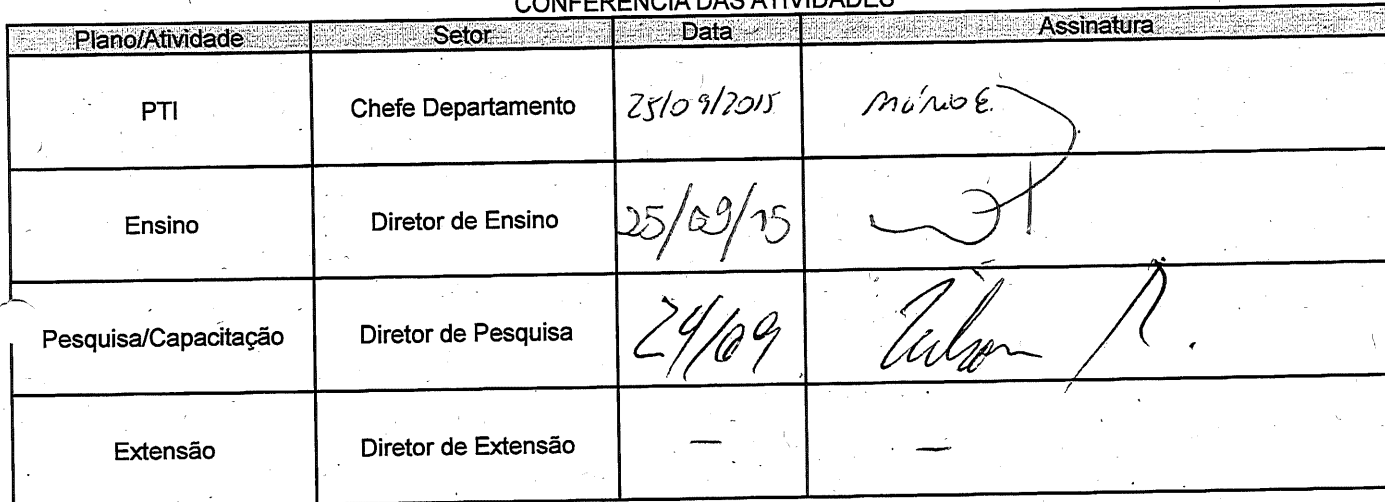 CONFERÊNCIA DAS ATIVIDADES
Plano/Atividade Setor Data Assinatura
PTI Chefe Departamento 25/09/2015
Ensino Diretor de Ensino 25/09/15
Pesquisa/Capacitação Diretor de Pesquisa 24/09
Extensão Diretor de Extensão — —